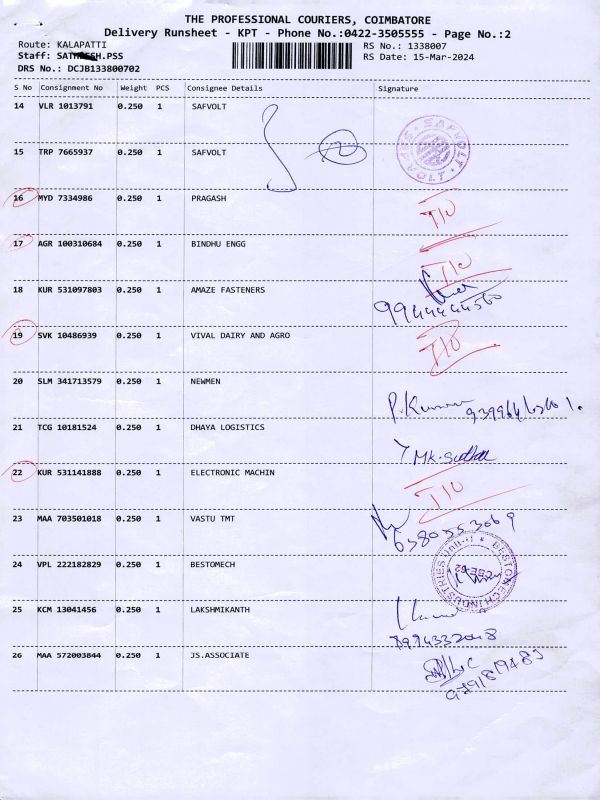 THE PROFESSIONAL COURIERS, COIMBATORE
Delivery Runsheet - KPT - Phone No.:0422-3505555 - Page No.:2
Route: KALAPATTI RS No.: 1338007
Staff: .PSS RS Date: 15-Mar-2024
DRS No.: DCJB133800702
S No Consignment No Weight PCS Consignee Details Signature
14 VLR 1013791 0.250 1 SAFVOLT
SAFVOLT
15 TRP 7665937 0.250 1 SAFVOLT
16 MYD 7334986 0.250 1 PRAGASH
T/O
17 AGR 100310684 0.250 1 BINDHU ENGG
T/O
18 KUR 531097803 0.250 1 AMAZE FASTENERS
9944444560
19 SVK 10486939 0.250 1 VIVAL DAIRY AND AGRO
T/O
20 SLM 341713579 0.250 1 NEWMEN
P. Kumar
21 TCG 10181524 0.250 1 DHAYA LOGISTICS
22 KUR 531141888 0.250 1 ELECTRONIC MACHIN
T/O
23 MAA 703501018 0.250 1 VASTU TMT
6380553069
24 VPL 222182829 0.250 1 BESTOMECH
BESTOMECH INDUSTRIES
25 KCM 13041456 0.250 1 LAKSHMIKANTH
26 MAA 572003844 0.250 1 JS.ASSOCIATE